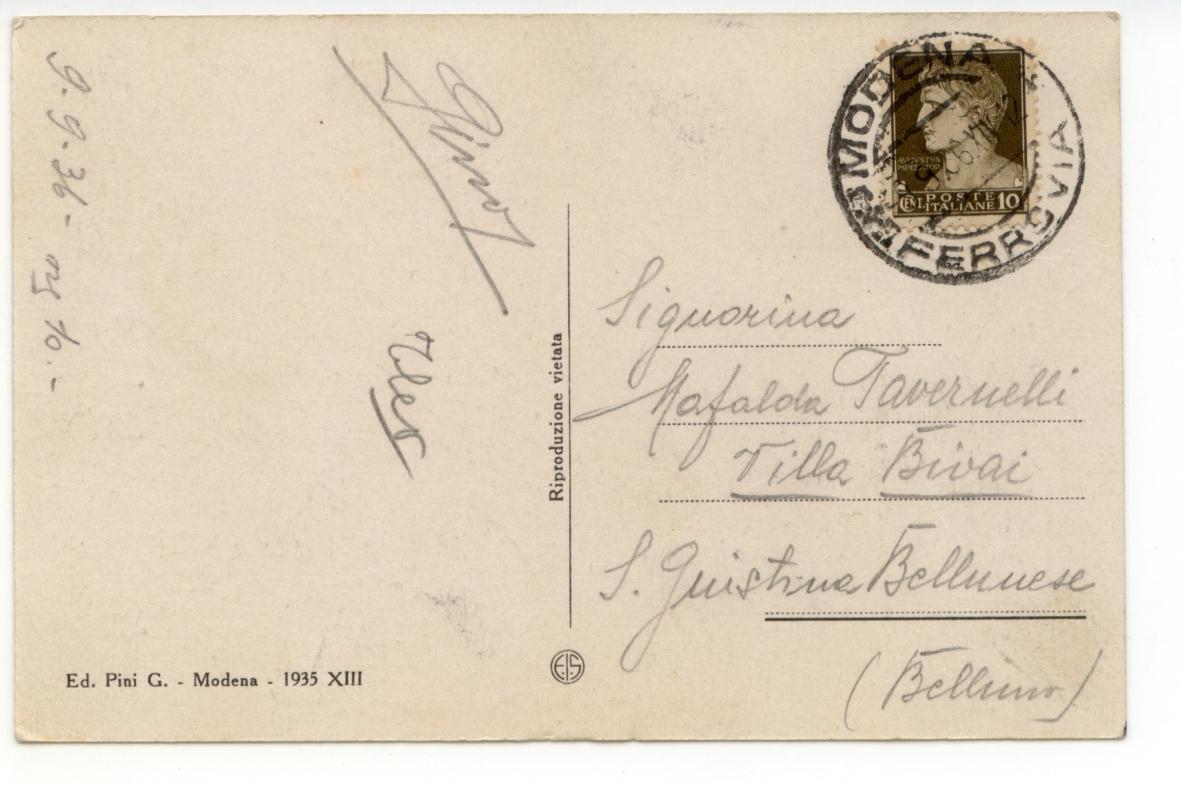 9.9.36 - ore 10.-
Gino
MODENA
FERROVIA
AVGVSTVS
IMPERATOR
CENT. POSTE
ITALIANE 10
Signorina
Mafalda Tavernelli
Villa Bivai
S. Giustina Bellunese
(Belluno)
Riproduzione vietata
Ed. Pini G. - Modena - 1935 XIII